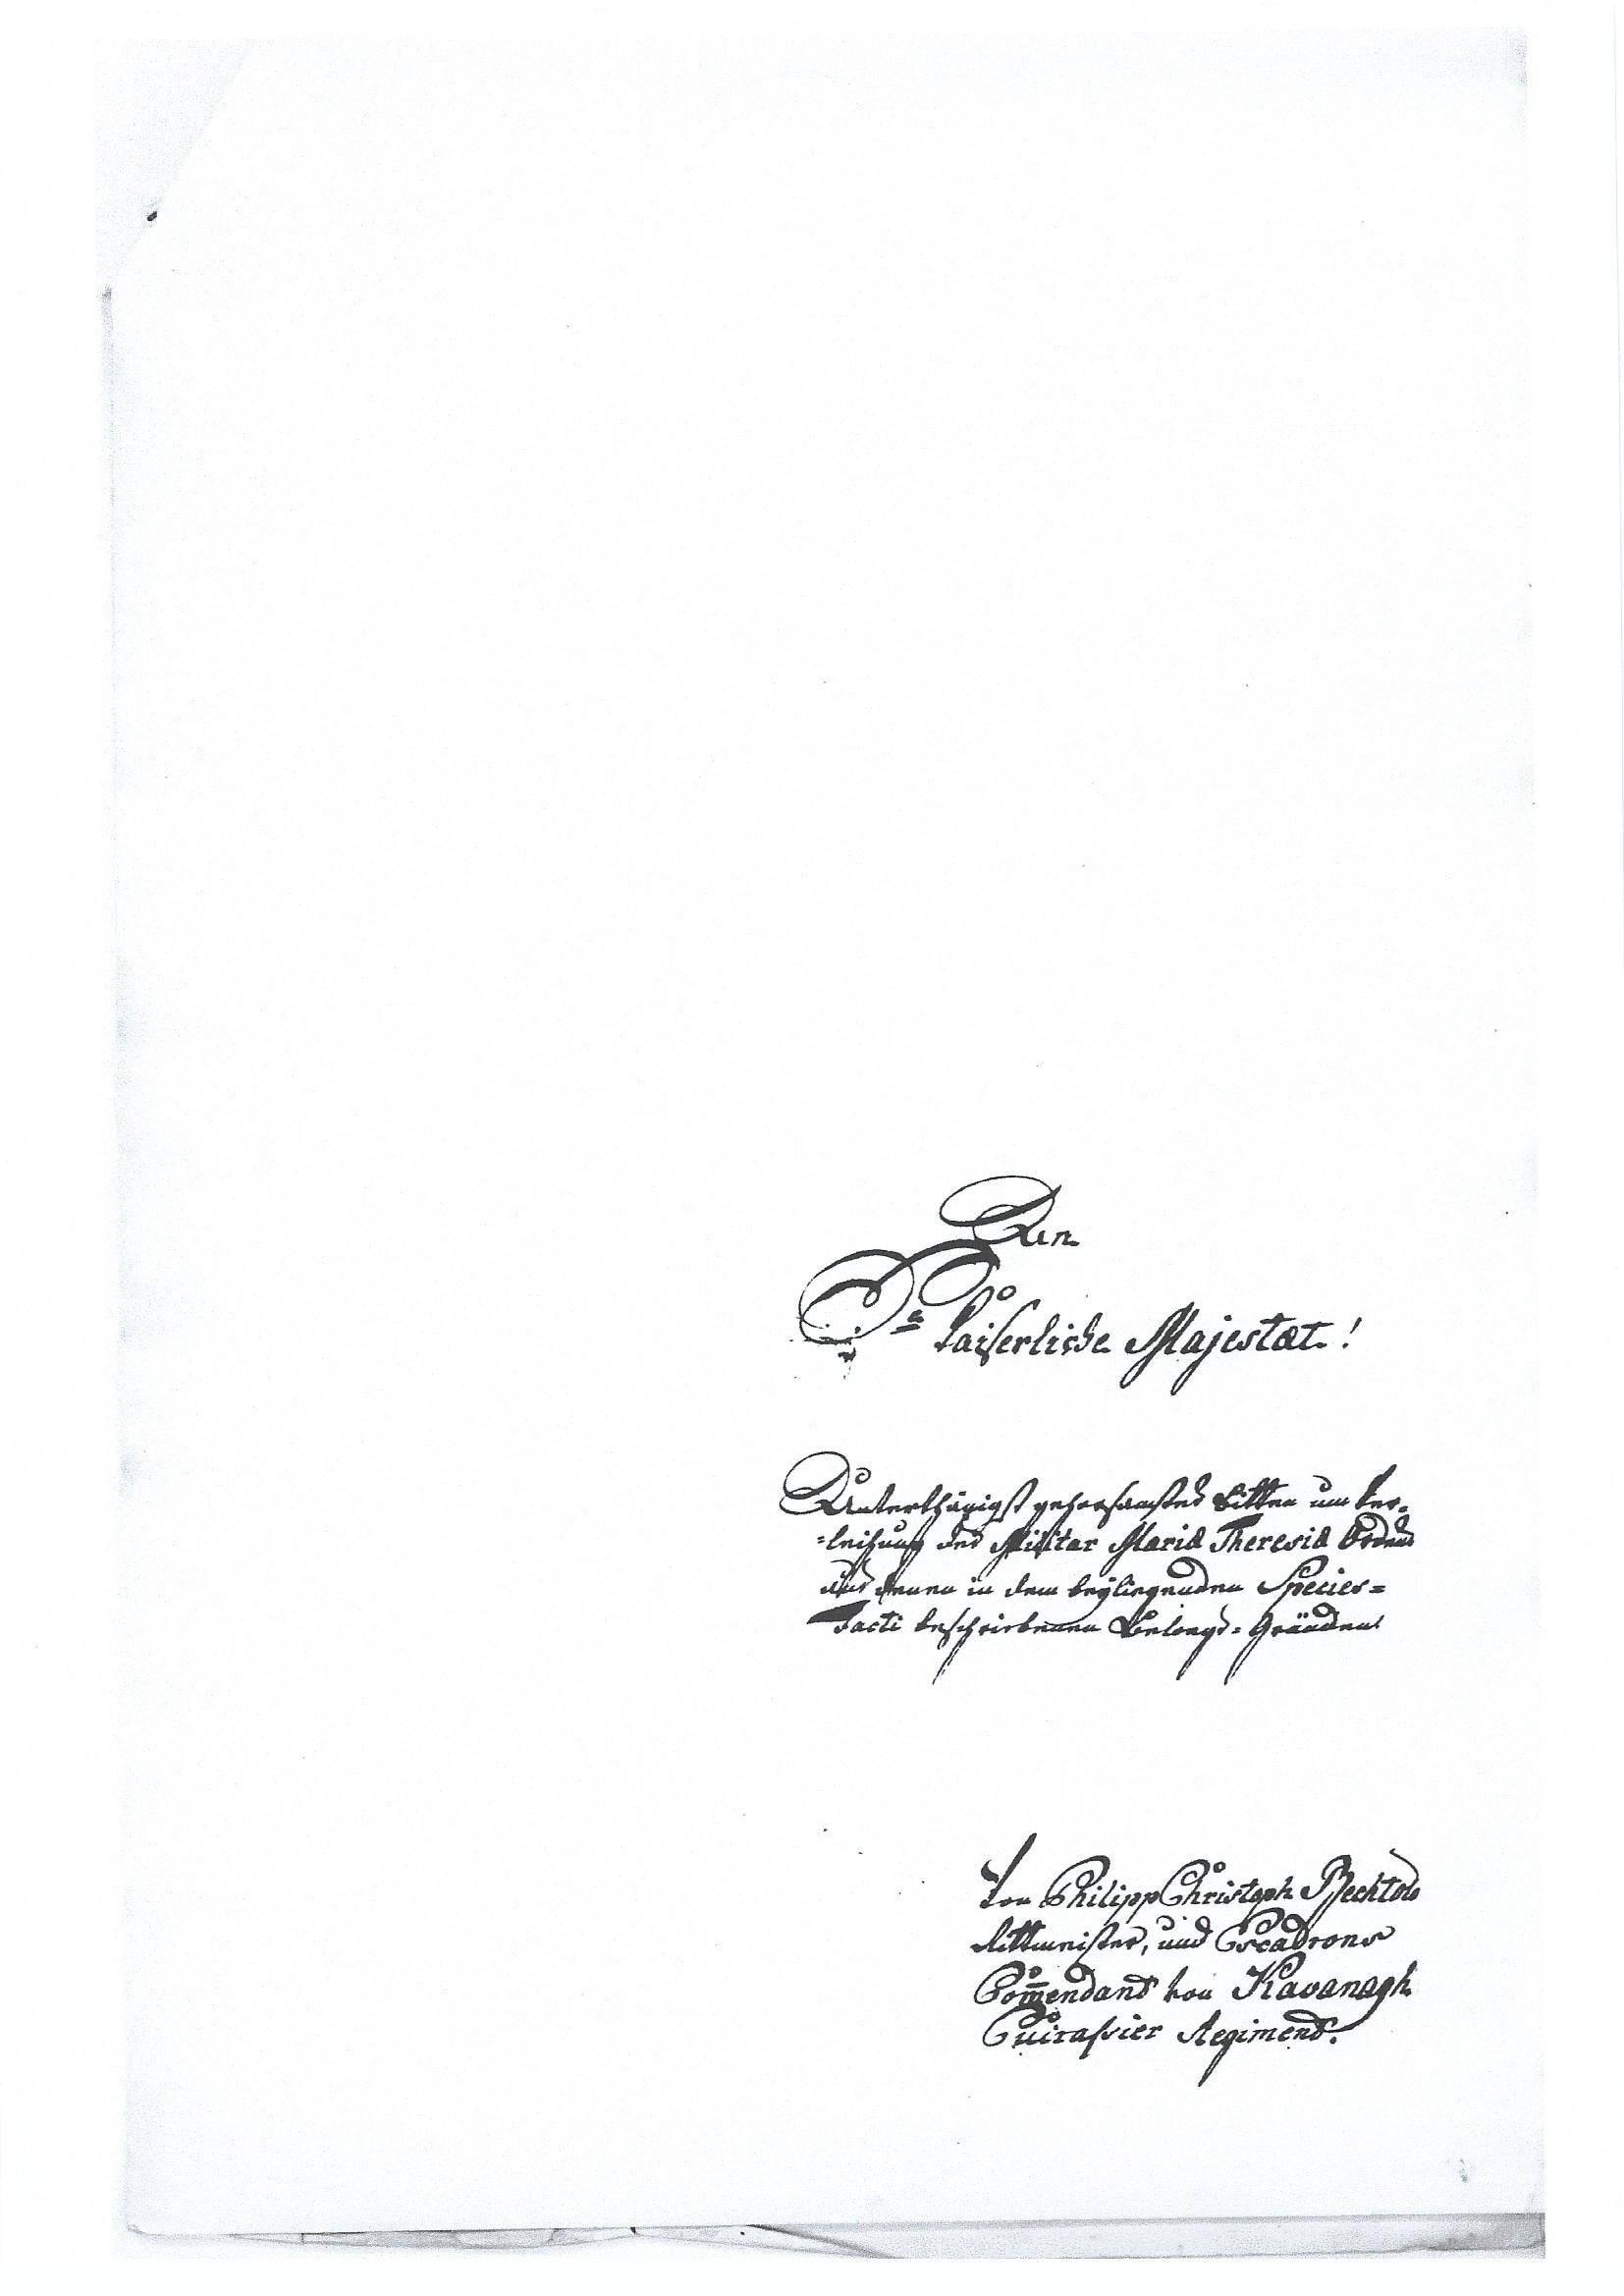 An
Se Kaiserliche Majestæt!
Unterthänigst gehorsamstes Bitten um Ver-
=leihung des Militar Maria Theresia Ordens
aus denen in dem beÿliegenden Species=
Facti beschriebenen Gründen.
Von Philipp Christoph Bechtold
Rittmeister, und Escadrons
Com̅endant von Kavanagh
Cuirassier Regiment.